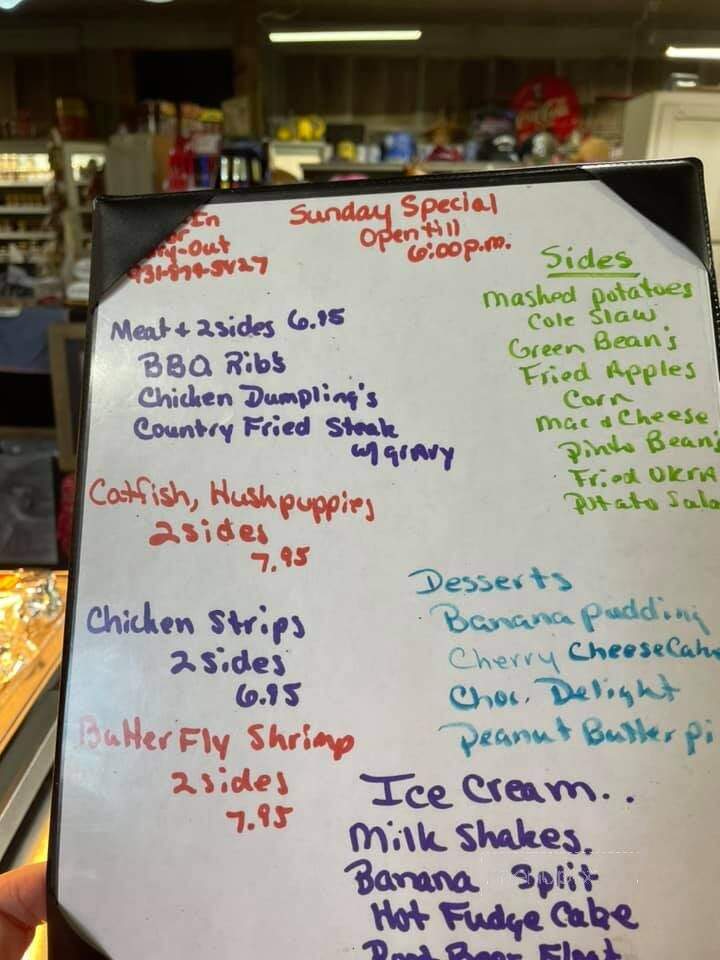 In
or
-Out
931-879-5427
Sunday Special
Open till
6:00 p.m.
Meat + 2 sides 6.95
BBQ Ribs
Chicken Dumpling's
Country Fried Steak
w/ gravy
Catfish, Hushpuppies
2 sides
7.95
Chicken Strips
2 sides
6.95
Butter Fly Shrimp
2 sides
7.95
Sides
mashed potatoes
Cole Slaw
Green Bean's
Fried Apples
Corn
Mac & Cheese
pinto Bean's
Fried OkrA
Potato Sala
Desserts
Banana pudding
Cherry CheeseCake
Choc. Delight
Peanut Butter pi
Ice Cream..
Milk Shakes.
Banana Split
Hot Fudge Cake
Root Beer Float
Coca-Cola